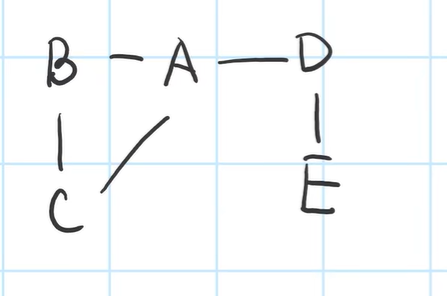 B A D
C E